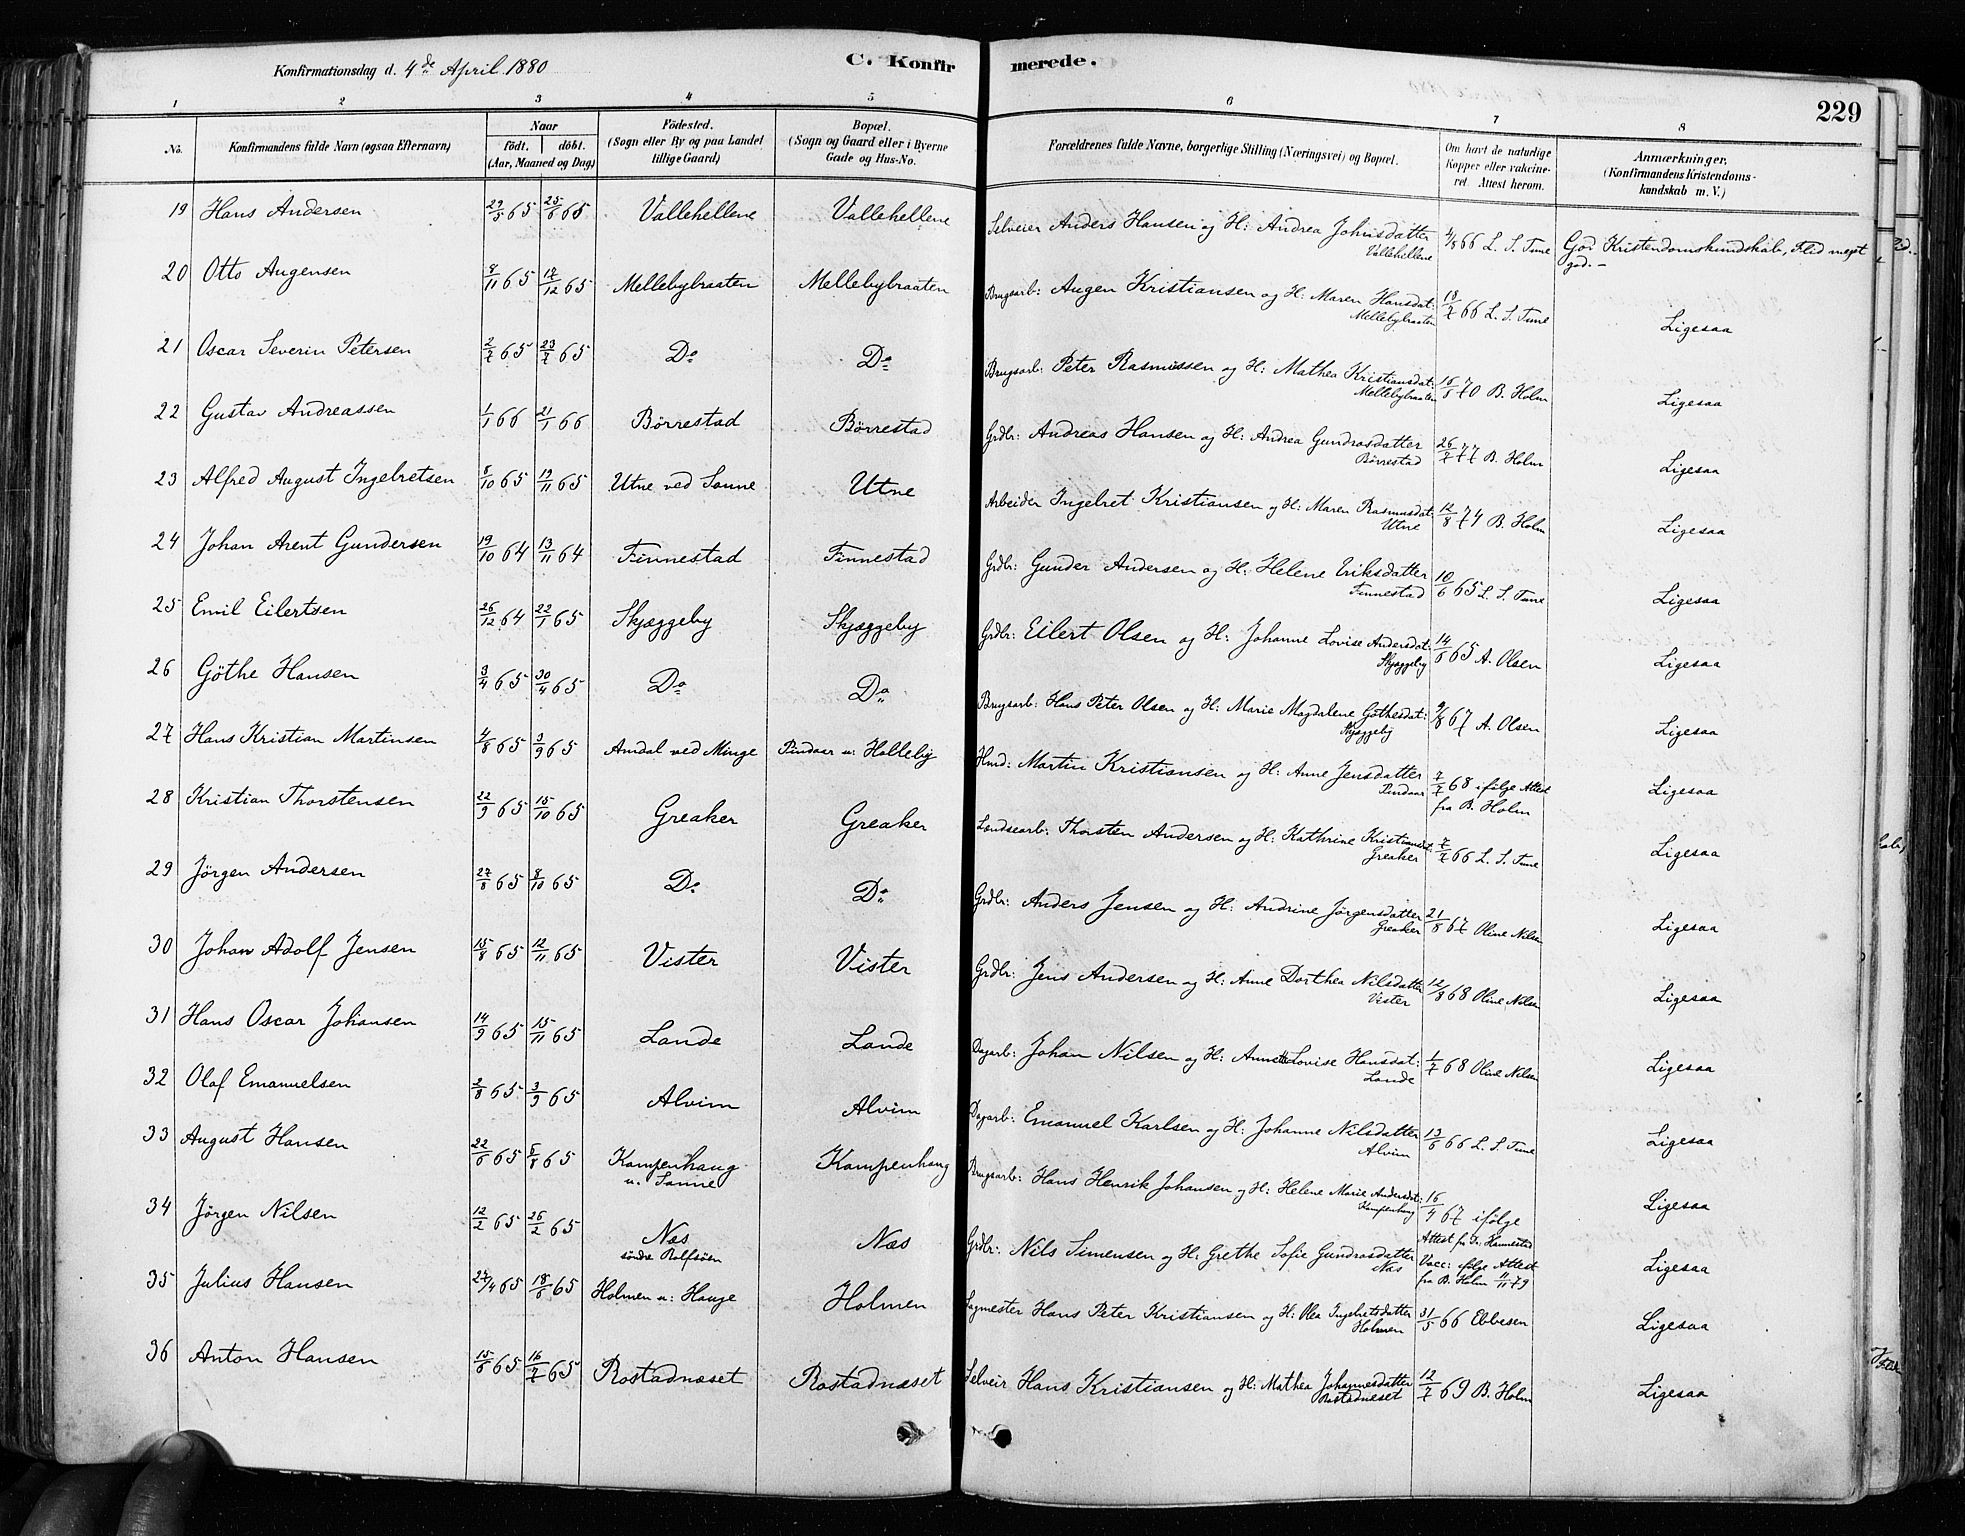 Konfirmationsdag d. 4de April 1880
C. Konfirmerede.
229
1 2 3 4 5 6 7 8
No. Konfirmandens fulde Navn (ogsaa Efternavn) Naar født. døbt. (Aar, Maaned og Dag) Fødested. (Sogn eller By og paa Landet tillige Gaard) Bopæl. (Sogn og Gaard eller i Byerne Gade og Hus-No. Forældrenes fulde Navne, borgerlige Stilling (Næringsvei) og Bopæl. Om havt de naturlige Kopper eller vakcineret. Attest herom. Anmærkninger, (Konfirmandens Kristendomskundskab m. V.)
19 Hans Andersen 29/5 65 25/6 65 Vallehellene Vallehellene Selveier Anders Hansen og H: Andrea Johnsdatter Vallehellene 4/8 66 L. S. Tune God Kristendomskundskab, Flid meget god. –
20 Otto Augensen 8/11 65 17/12 65 Mellebybraaten Mellebybraaten Brugsarb: Augen Kristiansen og H: Maren Hansdat: Mellebybraaten 13/7 66 L. S. Tune Ligesaa
21 Oscar Severin Petersen 2/7 65 23/7 65 Do Do Brugsarb: Peter Rasmussen og H: Mathea Kristiansdat: Mellebybraaten 16/8 70 B. Holm Ligesaa
22 Gustav Andreassen 1/1 66 21/1 66 Børrestad Børrestad Grdbr: Andreas Hansen og H: Andrea Gundrosdatter Børrestad 26/7 77 B. Holm Ligesaa
23 Alfred August Ingebretsen 8/10 65 19/11 65 Utne ved Sanne Utne Arbeider Ingebret Kristiansen og H: Maren Rasmusdat: Utne 12/8 74 B. Holm Ligesaa
24 Johan Arent Gundersen 19/10 64 13/11 64 Finnestad Finnestad Grdbr: Gunder Andersen og H: Helene Eriksdatter Finnestad 10/6 65 L. S. Tune Ligesaa
25 Emil Eilertsen 26/12 64 22/1 65 Skjæggeby Skjæggeby Grdbr: Eilert Olsen og H: Johanne Lovise Andersdat: Skjæggeby 14/6 65 A. Olsen Ligesaa
26 Göthe Hansen 3/4 65 30/4 65 Do Do Brugsarb: Hans Peter Olsen og H: Marie Magdalene Göthesdat: Skjæggeby 9/8 67 A. Olsen Ligesaa
27 Hans Kristian Martinsen 4/8 65 3/9 65 Amdal ved Minge Pindaar u: Holleby Hmd: Martin Kristiansen og H: Anne Jensdatter Pindaar 7/7 68 ifølge Attest fra B. Holm Ligesaa
28 Kristian Thorstensen 22/9 65 15/10 65 Greaker Greaker Landsearb: Thorsten Andersen og H: Kathrine Kristiansd: Greaker 7/7 66 L. S. Tune Ligesaa
29 Jörgen Andersen 27/8 65 8/10 65 Do Do Grdbr: Anders Jensen og H: Andrine Jørgensdatter Greaker 21/8 67 Oline Nilsen Ligesaa
30 Johan Adolf Jensen 15/8 65 12/11 65 Vister Vister Grdbr: Jens Andersen og H: Anne Dorthea Nilsdatter Vister 12/8 68 Oline Nilsen Ligesaa
31 Hans Oscar Johansen 14/9 65 15/11 65 Lande Lande Dagarb: Johan Nilsen og H: Annette Lovise Hansdat: Lande 1/7 68 Oline Nilsen Ligesaa
32 Olaf Emanuelsen 2/8 65 3/9 65 Alvim Alvim Dagarb: Emanuel Karlsen og H: Johanne Nilsdatter Alvim 13/6 66 L. S. Tune Ligesaa
33 August Hansen 22/6 65 6/8 65 Kampenhaug u. Sanne Kampenhaug Brugsarb: Hans Henrik Johansen og H: Helene Marie Andersdat: Kampenhaug 16/4 67 ifølge Attest fr Hannestad Ligesaa
34 Jörgen Nilsen 12/2 65 26/2 65 Næs søndre Rolfsøen Næs Grdbr: Nils Simensen og H: Grethe Sofie Gundrosdatter Næs Vacc: ifølge Attest fra B. Holm 4/11 79 Ligesaa
35 Julius Hansen 27/4 65 18/6 65 Holmen u: Hauge Holmen Sagmester Hans Peter Kristiansen og H: Olea Ingebretsdatter Holmen 31/5 66 Ebbesen Ligesaa
36 Anton Hansen 15/6 65 16/7 65 Rostadnæset Rostadnæset Selveir Hans Kristiansen og H: Mathea Johannesdatter Rostadnæset 12/7 69 B. Holm Ligesaa